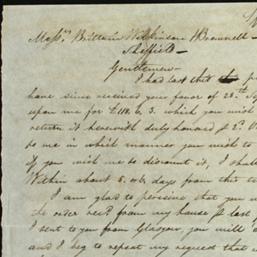 Messrs Brittain Wilkinson & Brownell
Sheffield
Gentlemen
I had last this
have since received your favor of 28th
upon me for £118. 6. 3. which you wish
return it herewith duly honored
to me in which manner you wish to
if you wish me to discount it, I shall
Within about 5 or 6 days from this
I am glad to perceive that you
the order recd from my house
I sent to you from Glasgow, you will
and I beg to repeat my request that